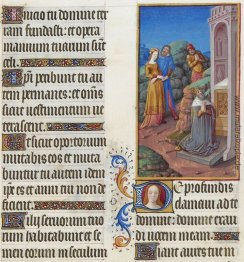 Inicio tu domine ter
ram fundasti: et opera
manuum tuarum sunt
celi.
Ipsi peribunt tu au
tem permanes: et omnes
sicut uestimentum ue
terascent.
Et sicut opertorium
mutabis eos et muta
buntur tu autem idem
ipse es et anni tui non de
ficient.
Filii seruorum tuo
rum habitabunt et se
men eorum in seculum
De profundis
clamaui ad te
domine: domine exau
di uocem meam.
Fiant aures tue in